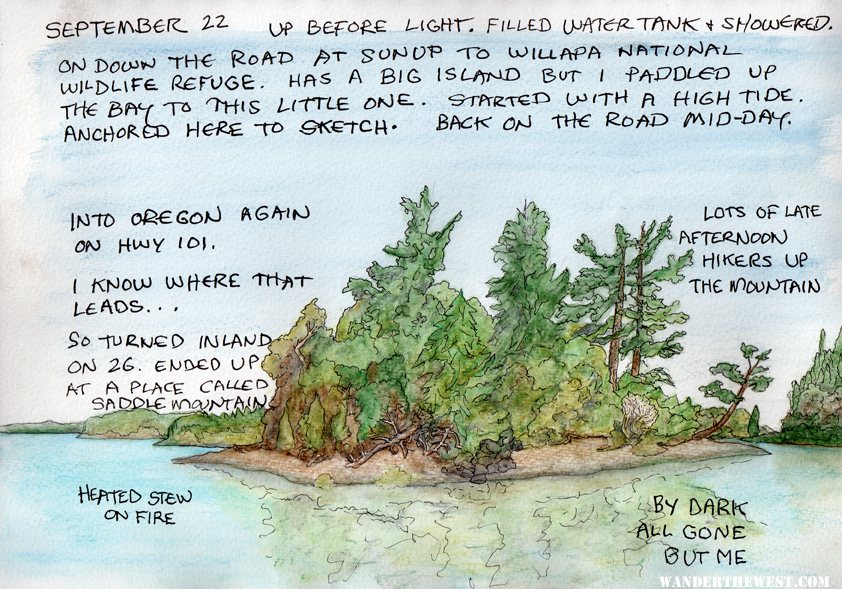 SEPTEMBER 22 UP BEFORE LIGHT. FILLED WATER TANK & SHOWERED.
ON DOWN THE ROAD AT SUNUP TO WILLAPA NATIONAL
WILDLIFE REFUGE. HAS A BIG ISLAND BUT I PADDLED UP
THE BAY TO THIS LITTLE ONE. STARTED WITH A HIGH TIDE.
ANCHORED HERE TO SKETCH. BACK ON THE ROAD MID-DAY.
INTO OREGON AGAIN
ON HWY 101.
I KNOW WHERE THAT
LEADS...
SO TURNED INLAND
ON 26. ENDED UP
AT A PLACE CALLED
SADDLE MOUNTAIN
LOTS OF LATE
AFTERNOON
HIKERS UP
THE MOUNTAIN
HEATED STEW
ON FIRE
BY DARK
ALL GONE
BUT ME
WANDERTHEWEST.COM